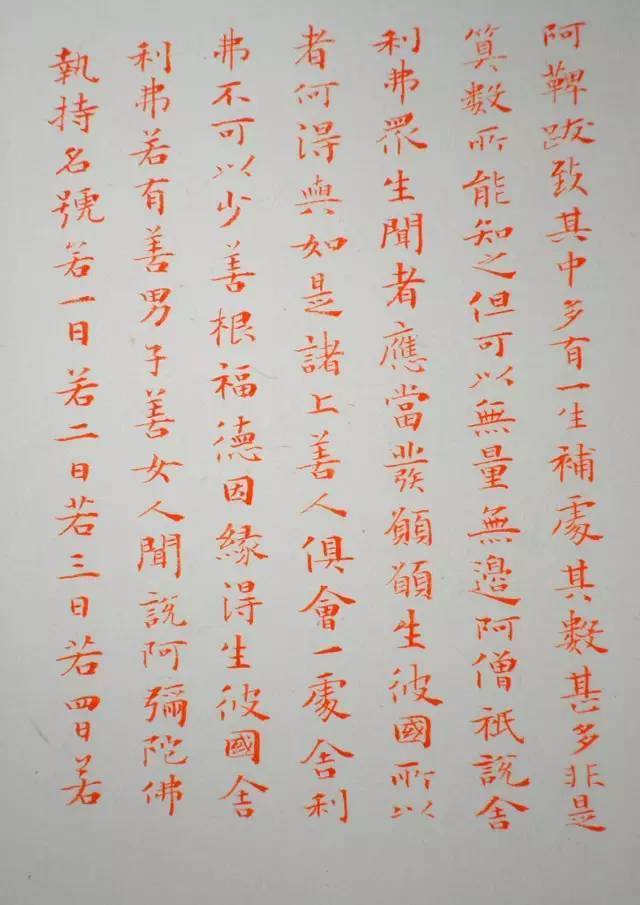 阿鞞跋致其中多有一生補處其數甚多非是
算數所能知之但可以無量無邊阿僧祇說舍
利弗眾生聞者應當發願願生彼國所以
者何得與如是諸上善人俱會一處舍利
弗不可以少善根福德因緣得生彼國舍
利弗若有善男子善女人聞說阿彌陀佛
執持名號若一日若二日若三日若四日若